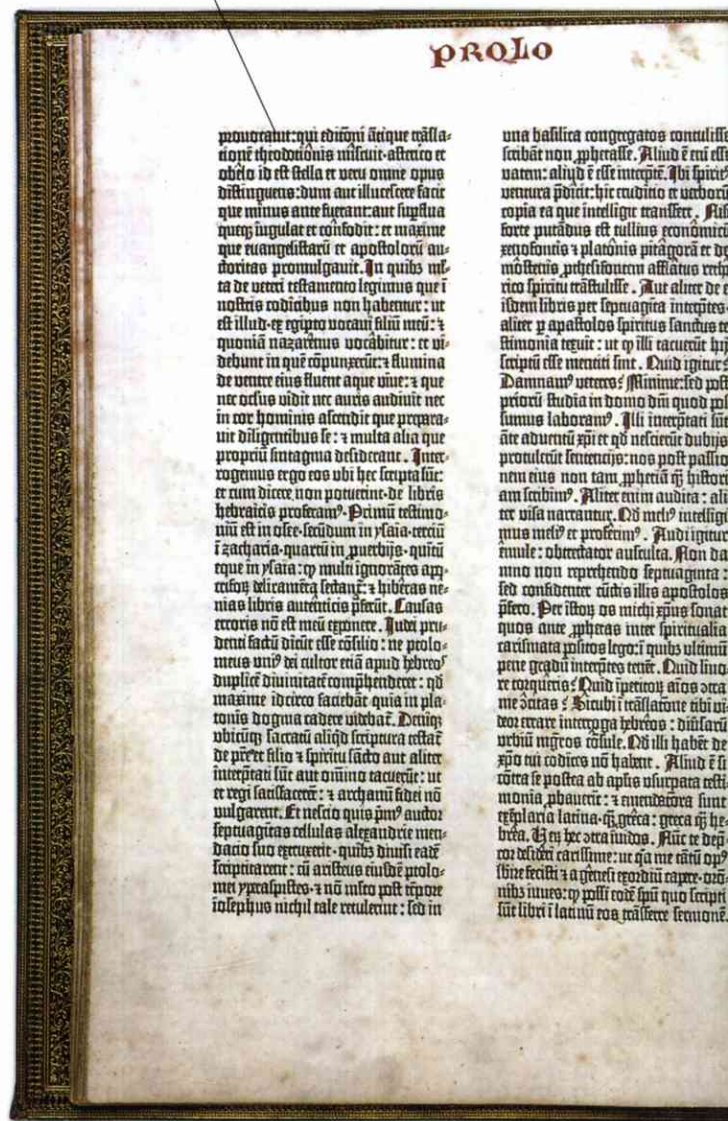 PROLO
ꝓuocatut: qui editõni ãtique trãsla-
tionẽ theodotiõnis miscuit·asterico et
obelo id est stella et veru omne opus
distinguens: dum aut illucescere facit
que minus ante fuerant: aut suꝑflua
queqȝ iugulat et confodit: et maxime
que euangelistarũ et apostolorũ au-
ctoritas promulgauit. In quibȝ ml̃-
ta de veteri testamento legimus que ĩ
nostris codicibus non habentur: ut
est illud·ex egipto vocaui filiũ meũ: ⁊
quoniã nazarenus vocabitur: et vi-
debunt in quẽ cõpunxerũt: ⁊ flumina
de ventre eius fluent aque viue: ⁊ que
nec oculus vidit nec auris audiuit nec
in cor hominis ascendit que prepara-
uit diligentibus se: ⁊ multa alia que
propriũ sintagma desiderant. Inter-
rogemus ergo eos vbi hec scripta sũt:
et cum dicere non potuerint·de libris
hebraicis proferamꝰ. Primũ testimo-
niũ est in osee·secũdum in ysaia·terciũ
ĩ zacharia·quartũ in ꝓuerbijs·quĩtũ
eque in ysaia: ꝙ multi ignorãtes apo-
crifoꝝ deliramẽta sectant̃: ⁊ hiberas ne-
nias libris autenticis p̃ferũt. Causas
erroris nõ est meũ exponere. Iudei pru-
denti factũ dicũt esse cõsilio: ne ptolo-
meus vniꝰ dei cultor etiã apud hebreos
duplicẽ diuinitatẽ comp̃henderet: qđ
maxime idcirco faciebãt quia in pla-
tonis dogma cadere videbat̃. Deniqȝ
vbicũqȝ sacratũ aliqd̃ scriptura testat̃
de p̃re et filio ⁊ spiritu sãcto aut aliter
interp̃tati sũt aut om̃ino tacuerũt: ut
et regi satisfacerẽt: ⁊ archanũ fidei nõ
vulgarent. Et nescio quis p̃mꝰ auctor
septuagĩtas cellulas alexandrie men-
dacio suo extruxerit·quibȝ diuisi eadẽ
scriptitarent: cũ aristeus eiusdẽ ptolo-
mei yperaspistes·⁊ nõ m̃lto post tẽpore
iosephus nichil tale retulerint: sed in
vna basilica congregatos contulisse
scribãt non ꝓphetasse. Aliud ẽ eni esse
vatem: aliud ẽ esse interp̃tẽ. Ibi spiritꝰ
ventura p̃dicit: hic eruditio et verborũ
copia ea que intelligit transfert. Nisi
forte putãdus est tullius economicũ
xenofontis ⁊ platõnis pitagorã et de
mõstenis ꝓthesifontem afflatus reto
rico spiritu trãstulisse. Aut aliter de e
isdem libris per septuagĩta interp̃tes·
aliter ꝑ apostolos spiritus sanctus te
stimonia texuit: ut ꝙ illi tacuerũt hij
scriptũ esse mentiti sint. Quid igitur?
Damnamꝰ veteres? Minime: sed post
priorũ studia in domo dñi quod pos
sumus laboramꝰ. Illi interp̃tati sũt
ãte aduentũ xp̃i et qđ nescierũt dubijs
protulerũt sentencijs: nos post passio
nem eius non tam ꝓphetiã qȝ histori
am scribimꝰ. Aliter enim audita: ali
ter visa narrantur. Qđ meliꝰ intelligi
mus meliꝰ et proferimꝰ. Audi igitur
emule: obtrectator ausculta. Non da
mno non reprehendo septuaginta:
sed confidenter cũctis illis apostolos
p̃fero. Per istoꝝ os michi xp̃us sonat
quos ante ꝓphetas inter spiritualia
carismata positos lego: ĩ quibȝ vltimũ
pene gradũ interp̃tes tenẽt. Quid liuo-
re torqueris? Quid ĩperitoꝝ aĩos ↄtra
me ↄcitas? Sicubi ĩ trãslatione tibi vi-
deor errare interroga hebreos: diũsarũ
vrbiũ mg̃ros cõsule. Qđ illi habẽt de
xp̃o tui codices nõ habent. Aliud ẽ si
cõtra se postea ab apl̃is vsurpata testi-
monia ꝓbauerũt: ⁊ emendatiora sunt
exẽplaria latina·qȝ greca: greca qȝ he-
brea. Uerȝ hec ↄtra ĩuidos. Nũc te dep̃-
cor desideri carissime: ut qa me tãtũ opꝰ
sbire fecisti ⁊ a genesi exordiũ capere·orõ-
nibȝ iuues: ꝙ possĩ eodẽ spũ quo scripti
sũt libri ĩ latinũ eos trãsferre sermonẽ.